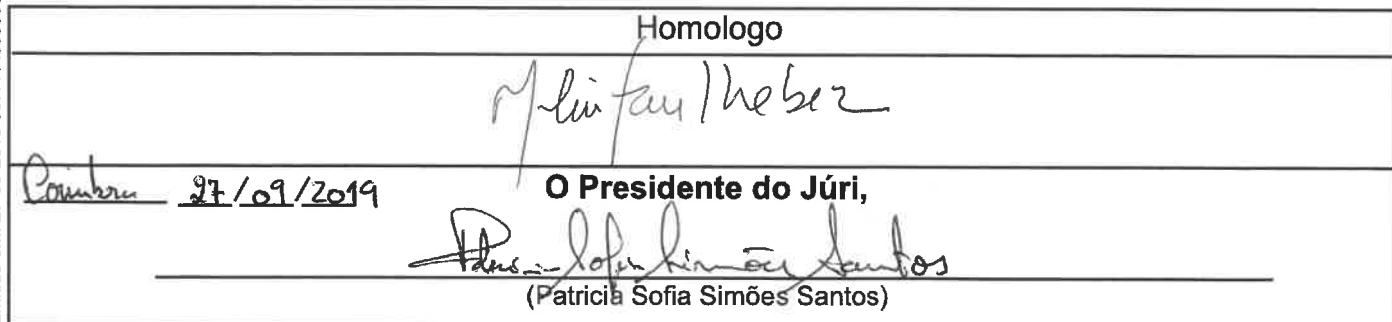 Homologo
Coimbra 27/09/2019 O Presidente do Júri,
Patricia Sofia Simões Santos
(Patricia Sofia Simões Santos)